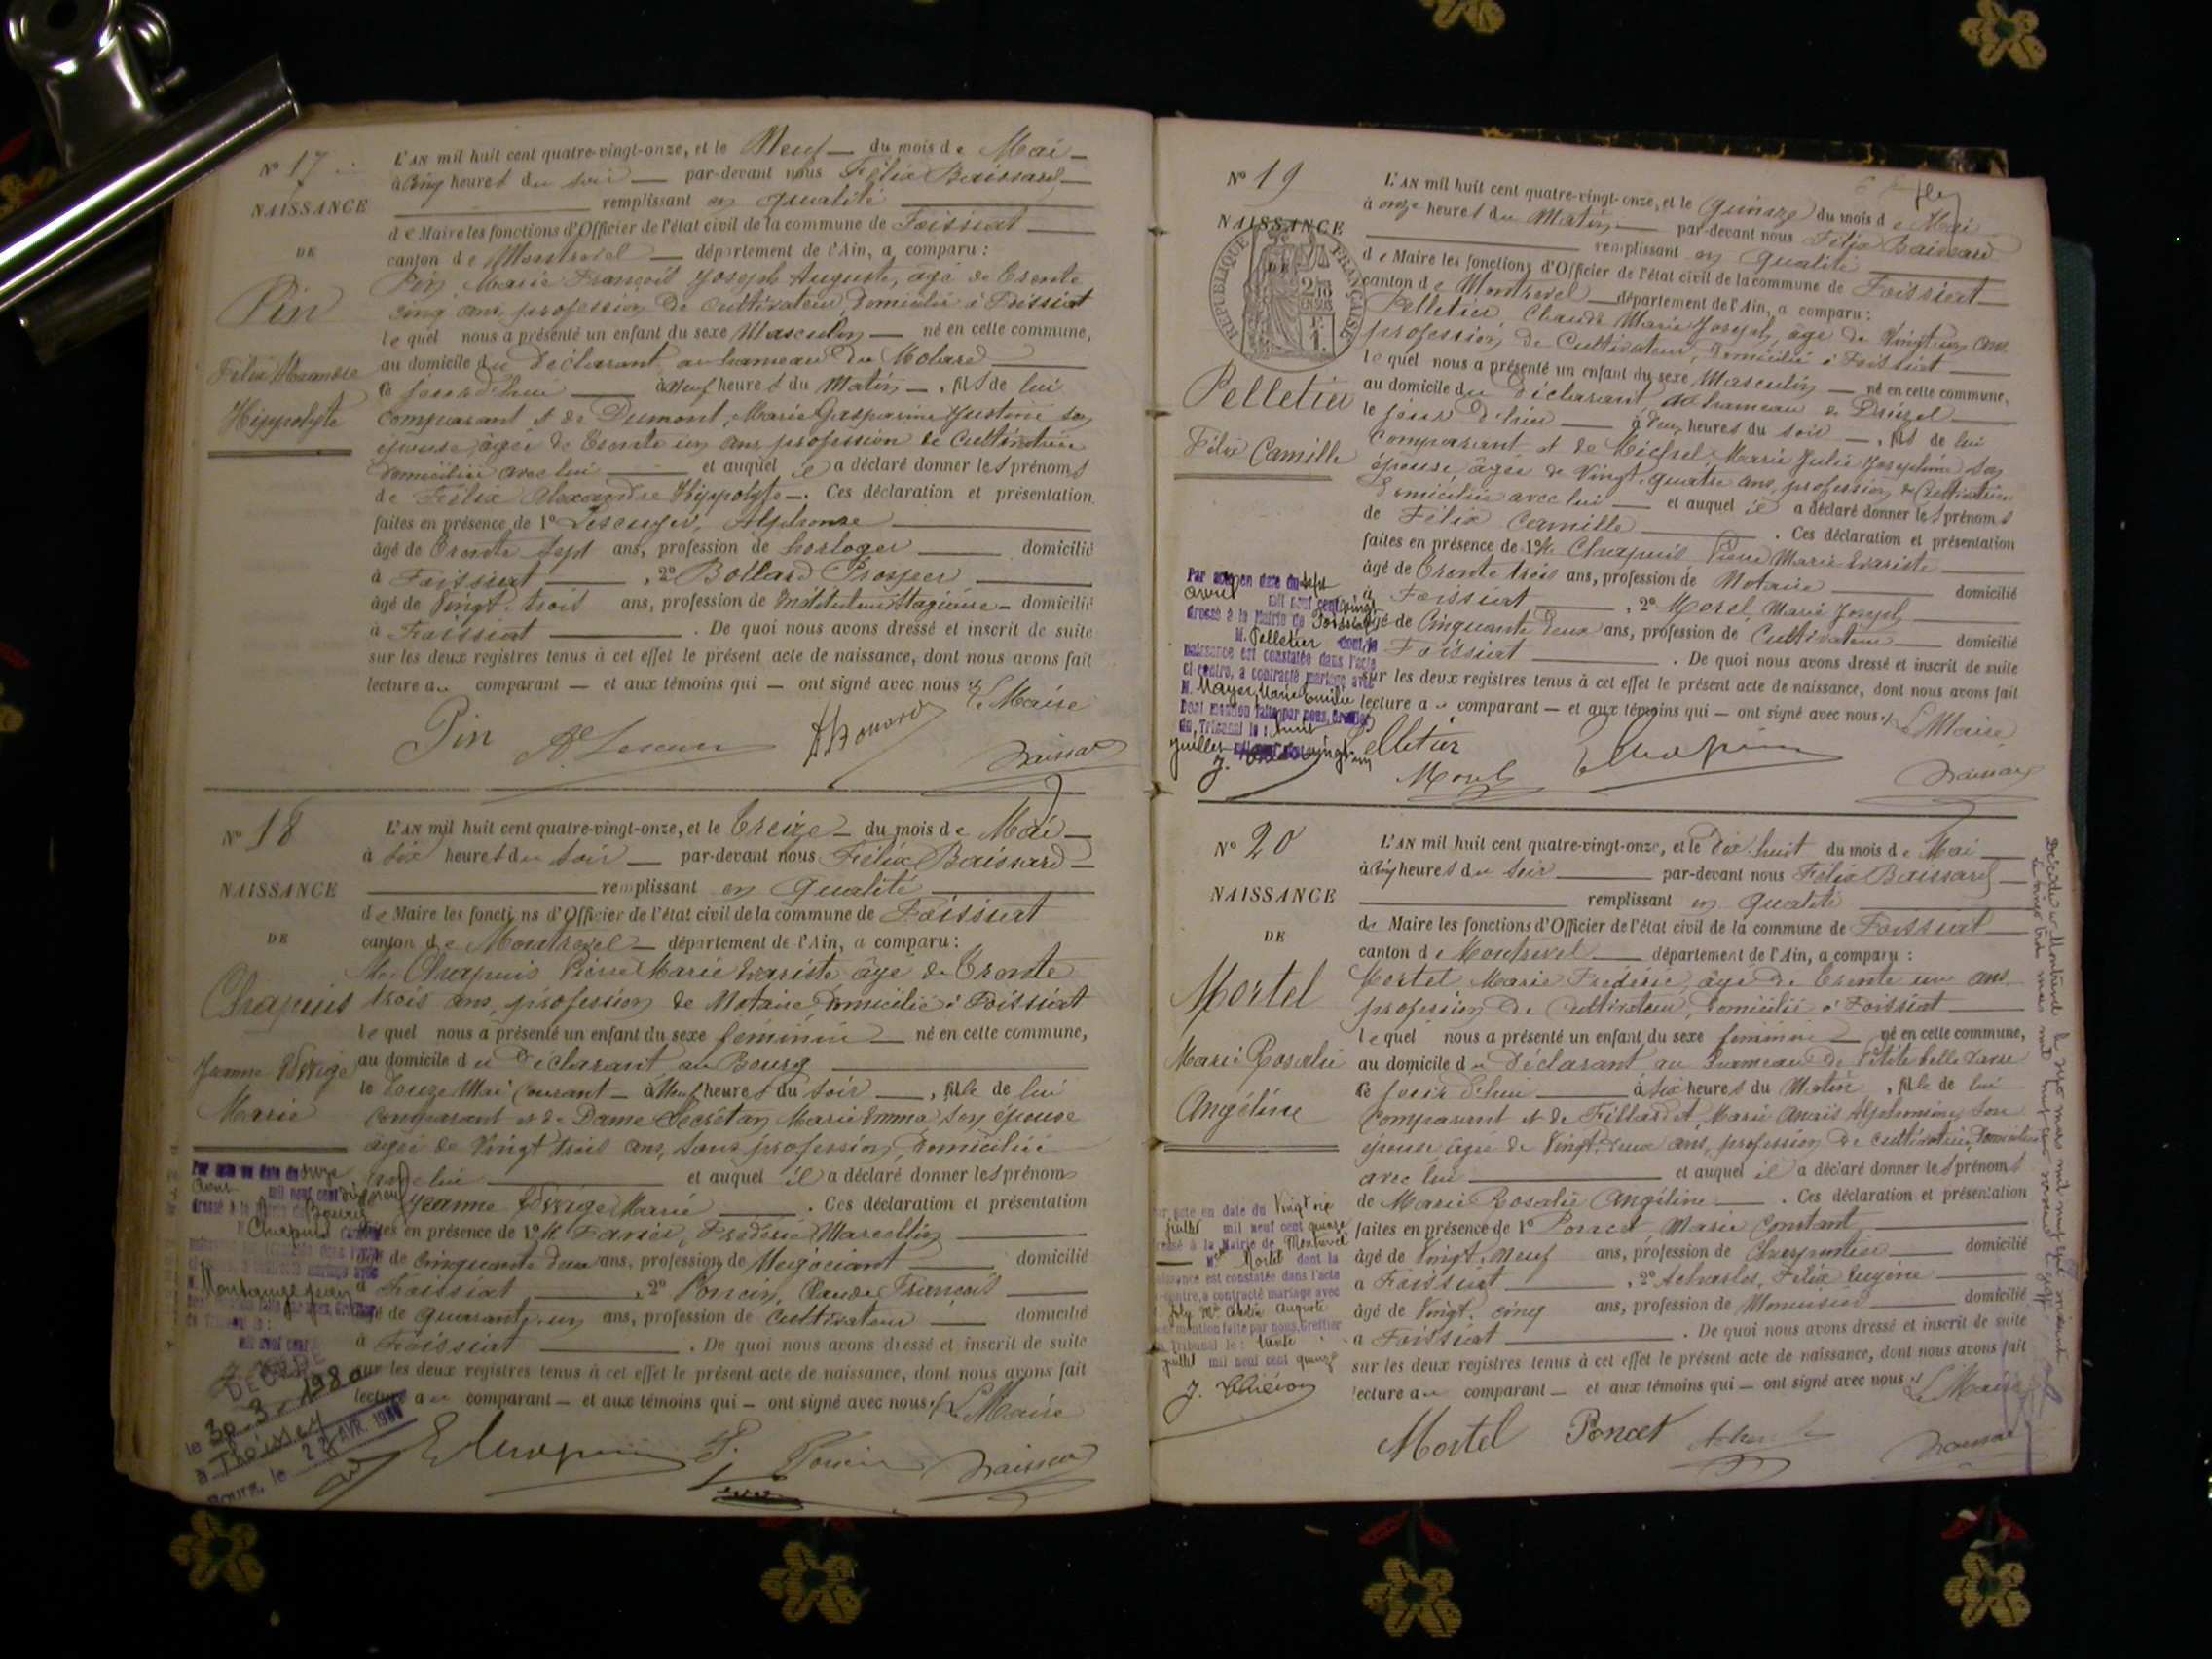 N° 17
NAISSANCE
DE
Pin
Félix Alexandre
Hippolyte
L'AN mil huit cent quatre-vingt-onze, et le Neuf du mois de Mai
à cinq heures du soir par-devant nous Félix Baissard
remplissant en qualité
de Maire les fonctions d'Officier de l'état civil de la commune de Foissiat
canton de Montrevel département de l'Ain, a comparu :
Pin Marie François Joseph Auguste, âgé de trente
cinq ans, profession de cultivateur, domicilié à Foissiat
lequel nous a présenté un enfant du sexe Masculin né en cette commune,
au domicile du Déclarant au hameau du Molard
ce jourd'hui à neuf heures du Matin, fils de lui
Comparant et de Dumont, Marie Gasparine Justine son
épouse, âgée de trente un ans, profession de Cultivatrice
domiciliée avec lui et auquel il a déclaré donner les prénoms
de Félix Alexandre Hippolyte. Ces déclaration et présentation
faites en présence de 1° Lescuyer, Alphonse
âgé de trente sept ans, profession de horloger domicilié
à Foissiat, 2° Bollard Prosper
âgé de Vingt-trois ans, profession de Instituteur Stagiaire domicilié
à Foissiat. De quoi nous avons dressé et inscrit de suite
sur les deux registres tenus à cet effet le présent acte de naissance, dont nous avons fait
lecture au comparant et aux témoins qui ont signé avec nous
Le Maire
Pin
N° 18
NAISSANCE
DE
Chapuis
Jeanne Edwige
Marie
L'AN mil huit cent quatre-vingt-onze, et le treize du mois de Mai
à six heures du soir par-devant nous Félix Baissard
remplissant en qualité
de Maire les fonctions d'Officier de l'état civil de la commune de Foissiat
canton de Montrevel département de l'Ain, a comparu :
Me Chapuis Pierre Marie Evariste, âgé de trente
trois ans, profession de Notaire, domicilié à Foissiat
lequel nous a présenté un enfant du sexe féminin né en cette commune,
au domicile du Déclarant, au Bourg
le douze Mai Courant à Neuf heures du soir, fille de lui
Comparant et de Dame Secrétan Marie Emma, son épouse
âgée de Vingt trois ans, sans profession, domiciliée
avec lui et auquel il a déclaré donner les prénoms
Jeanne Edwige Marie. Ces déclaration et présentation
faites en présence de 1° M. Favier, Frédéric Marcellin
âgé de cinquante deux ans, profession de Négociant domicilié
à Foissiat, 2° Poncin, Claude François
âgé de quarante-un ans, profession de cultivateur domicilié
à Foissiat. De quoi nous avons dressé et inscrit de suite
sur les deux registres tenus à cet effet le présent acte de naissance, dont nous avons fait
lecture au comparant et aux témoins qui ont signé avec nous.
Le Maire
Poncin
Par acte en date du onze
Août mil neuf cent
Chapuis
le 30-3-1980
à Thoissey
Bourg, le 22 AVR. 1980
N° 19
NAISSANCE
DE
RÉPUBLIQUE FRANÇAISE
Pelletier
Félix Camille
L'AN mil huit cent quatre-vingt-onze, et le Quinze du mois de Mai
à onze heures du Matin par-devant nous Félix Baissard
remplissant en qualité
de Maire les fonctions d'Officier de l'état civil de la commune de Foissiat
canton de Montrevel département de l'Ain, a comparu :
Pelletier Claude Marie Joseph, âgé de Vingt-un ans
profession de Cultivateur, domicilié à Foissiat
lequel nous a présenté un enfant du sexe Masculin né en cette commune,
au domicile du Déclarant au hameau de
le jour d'hier à deux heures du soir, fils de lui
Comparant et de Michel, Marie Julie Joséphine son
épouse, âgée de Vingt-quatre ans, profession de Cultivatrice
domiciliée avec lui et auquel il a déclaré donner les prénoms
de Félix Camille. Ces déclaration et présentation
faites en présence de 1° Me Chapuis Pierre Marie Evariste
âgé de trente trois ans, profession de Notaire domicilié
à Foissiat, 2° Morel, Marie Joseph
âgé de Cinquante deux ans, profession de Cultivateur domicilié
à Foissiat. De quoi nous avons dressé et inscrit de suite
sur les deux registres tenus à cet effet le présent acte de naissance, dont nous avons fait
lecture au comparant et aux témoins qui ont signé avec nous.
Le Maire
Pelletier
Morel
Par acte en date du sept
avril mil neuf cent vingt
dressé à la Mairie de Foissiat
M. Pelletier dont la
naissance est constatée dans l'acte
ci-contre, a contracté mariage avec
M. Mayer, Marie Emilie
Dont mention faite par nous, Greffier
du Tribunal le : huit
juillet
N° 20
NAISSANCE
DE
Mortel
Marie Rosalie
Angéline
L'AN mil huit cent quatre-vingt-onze, et le dix-huit du mois de Mai
à cinq heures du soir par-devant nous Félix Baissard
remplissant en qualité
de Maire les fonctions d'Officier de l'état civil de la commune de Foissiat
canton de Montrevel département de l'Ain, a comparu :
Mortel Marie Frédéric, âgé de trente un ans
profession de Cultivateur, domicilié à Foissiat
lequel nous a présenté un enfant du sexe féminin né en cette commune,
au domicile du Déclarant au hameau de Petite belle
ce jour d'hui à six heures du Matin, fille de lui
Comparant et de Fillardet, Marie Anaïs Alphonsine, son
épouse, âgée de Vingt-deux ans, profession de cultivatrice, domiciliée
avec lui et auquel il a déclaré donner les prénoms
de Marie Rosalie Angéline. Ces déclaration et présentation
faites en présence de 1° Poncet, Marie Constant
âgé de Vingt-Neuf ans, profession de Charpentier domicilié
à Foissiat, 2° Félix Eugène
âgé de Vingt-cinq ans, profession de Menuisier domicilié
à Foissiat. De quoi nous avons dressé et inscrit de suite
sur les deux registres tenus à cet effet le présent acte de naissance, dont nous avons fait
lecture au comparant et aux témoins qui ont signé avec nous.
Le Maire
Mortel Poncet
Par acte en date du Vingt
juillet mil neuf cent quinze
dressé à la Mairie de Montrevel
Mortel dont la
naissance est constatée dans l'acte
ci-contre, a contracté mariage avec
Auguste
Dont mention faite par nous, Greffier
du Tribunal le : trente
juillet mil neuf cent quinze
Décédée à Montrevel le